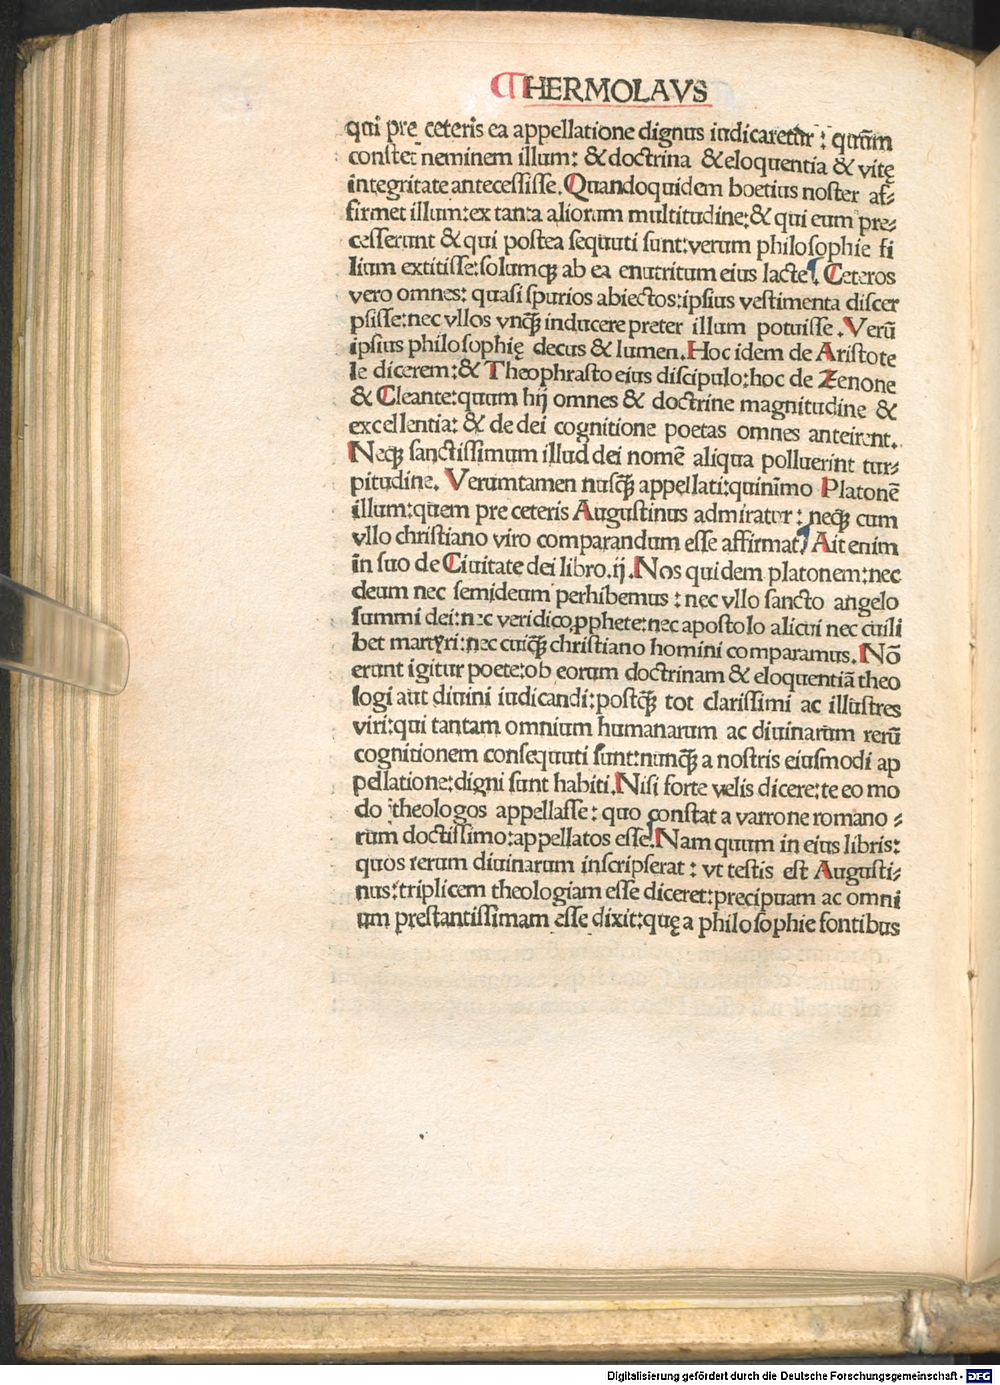 HERMOLAVS
qui pre ceteris ea appellatione dignus iudicaretur : quū̄m
constet neminem illum: & doctrina & eloquentia & vitę
integritate antecessisse. Quandoquidem boetius noster af⸗
firmet illum:ex tanta aliorum multitudine:& qui eum pre⸗
cesserunt & qui postea sequuti sunt:verum philosophie fi
lium extitisse:solumqꝫ ab ea enutritum eius lacte. Ceteros
vero omnes: quasi spurios abiectos:ipsius vestimenta discer
psisse:nec vllos vnqꝫ̄ inducere preter illum potuisse. Verū
ipsius philosophię decus & lumen. Hoc idem de Aristote
le dicerem:& Theophrasto eius discipulo:hoc de Zenone
& Cleante:quum hij omnes & doctrine magnitudine &
excellentia: & de dei cognitione poetas omnes anteirent.
Neqꝫ sanctissimum illud dei nomē aliqua polluerint tur⸗
pitudine. Verumtamen nusqꝫ̄ appellati:quinīmo Platonē
illum:quem pre ceteris Augustinus admiratur : neqꝫ cum
vllo christiano viro comparandum esse affirmat. Ait enim
in suo de Ciuitate dei libro.ij. Nos quidem platonem:nec
deum nec semideum perhibemus : nec vllo sancto angelo
summi dei:nec veridico ꝓphete:nec apostolo alicui nec cuili
bet martyri:nec cuiqꝫ̄ christiano homini comparamus. Nō
erunt igitur poete:ob eorum doctrinam & eloquentiā theo
logi aut diuini iudicandi:postqꝫ̄ tot clarissimi ac illustres
viri:qui tantam omnium humanarum ac diuinarum rerū
cognitionem consequuti sunt:nunqꝫ̄ a nostris eiusmodi ap
pellatione:digni sunt habiti. Nisi forte velis dicere:te eo mo
do theologos appellasse: quo constat a varrone romano⸗
rum doctissimo:appellatos esse. Nam quum in eius libris:
quos rerum diuinarum inscripserat : vt testis est Augusti⸗
nus:triplicem theologiam esse diceret:precipuam ac omni
um prestantissimam esse dixit:quę a philosophie fontibus
Digitalisierung gefördert durch die Deutsche Forschungsgemeinschaft - DFG